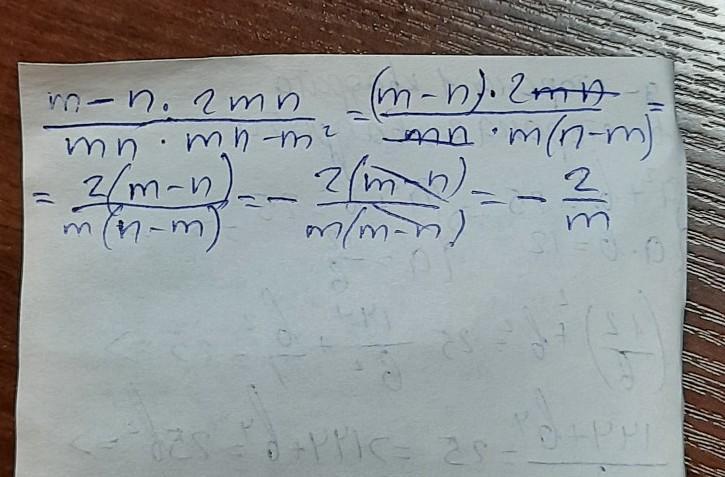 m-n · 2mn / mn · mn-m² = (m-n) · 2mn / mn · m(n-m) =
= 2(m-n) / m(n-m) = - 2(m-n) / m(m-n) = - 2 / m